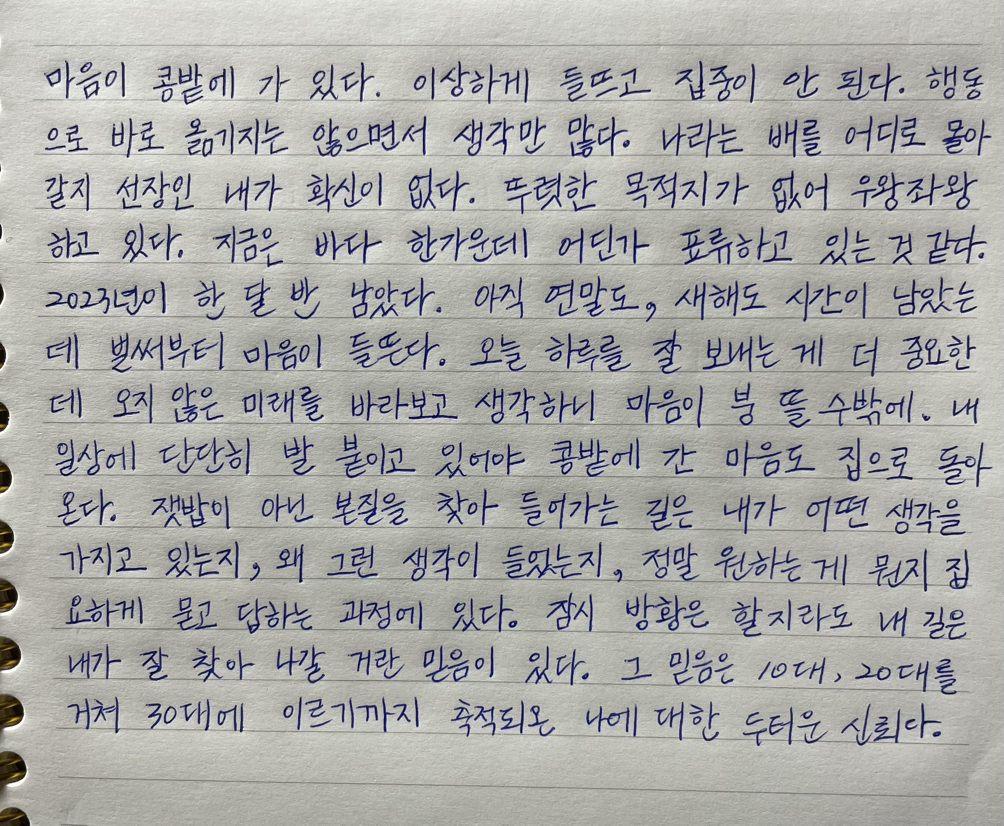 마음이 콩밭에 가 있다. 이상하게 들뜨고 집중이 안 된다. 행동
으로 바로 옮기지는 않으면서 생각만 많다. 나라는 배를 어디로 몰아
갈지 선장인 내가 확신이 없다. 뚜렷한 목적지가 없어 우왕좌왕
하고 있다. 지금은 바다 한가운데 어딘가 표류하고 있는 것 같다.
2023년이 한 달 반 남았다. 아직 연말도, 새해도 시간이 남았는
데 벌써부터 마음이 들뜬다. 오늘 하루를 잘 보내는 게 더 중요한
데 오지 않은 미래를 바라보고 생각하니 마음이 붕 뜰 수밖에. 내
일상에 단단히 발 붙이고 있어야 콩밭에 간 마음도 집으로 돌아
온다. 잿밥이 아닌 본질을 찾아 들어가는 길은 내가 어떤 생각을
가지고 있는지, 왜 그런 생각이 들었는지, 정말 원하는 게 뭔지 집
요하게 묻고 답하는 과정에 있다. 잠시 방황은 할지라도 내 길은
내가 잘 찾아 나갈 거란 믿음이 있다. 그 믿음은 10대, 20대를
거쳐 30대에 이르기까지 축적되온 나에 대한 두터운 신뢰다.